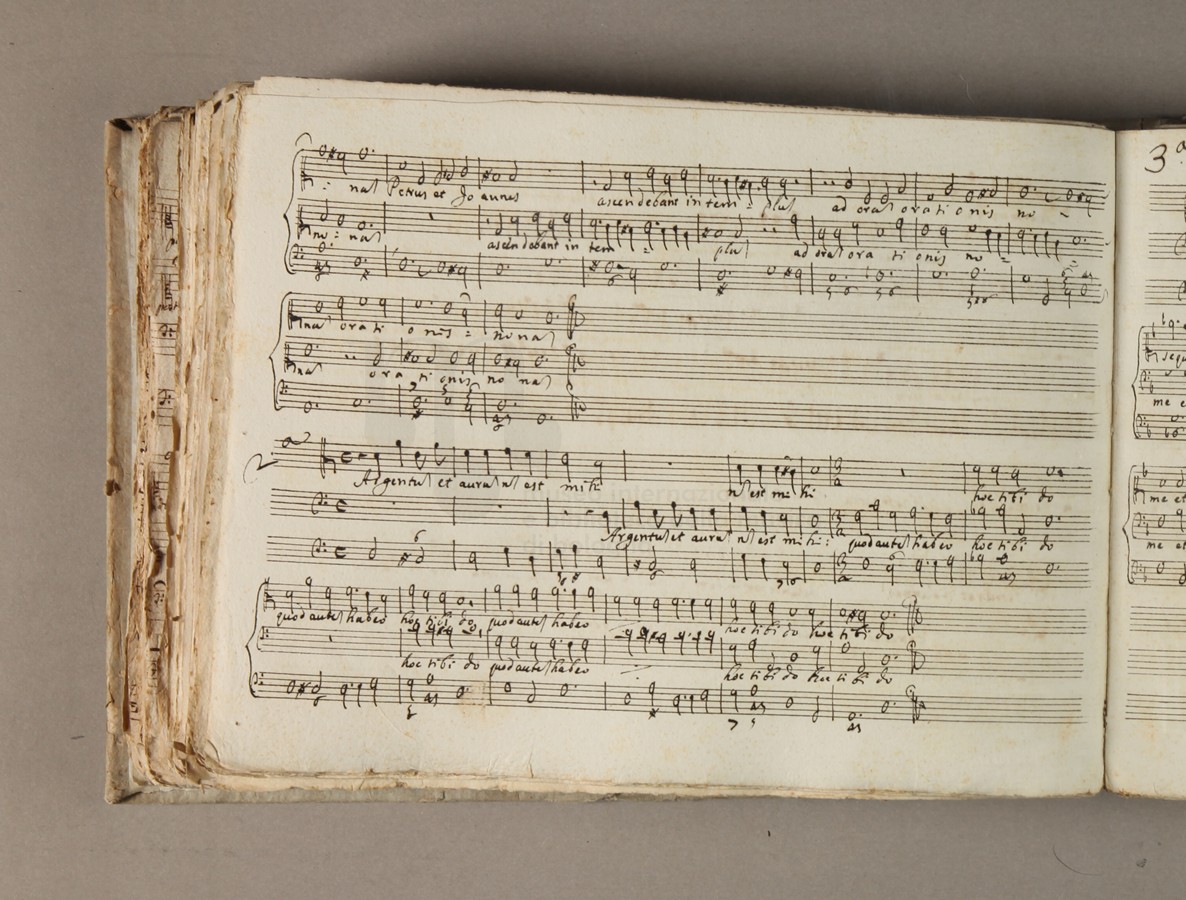 nas Petrus et Joannes ascendebant in tem = plus ad oras orationis no
no = nas ascendebant in tem = plus ad oras ora ti onis no =
nas orati onis = no nas
nas ora ti onis no nas
2ª
Argentus et auras ns est mihi ns est mi hi hoc tibi do
Argentus et auras ns est mi hi : quod autes habeo hoc tibi do
quod autes habeo hoc tibi do quod autes habeo hoc tibi do hoc tibi do
hoc tibi do quod autes habeo hoc tibi do hoc ti bi do
3ª
sequ
me e
me et
me et